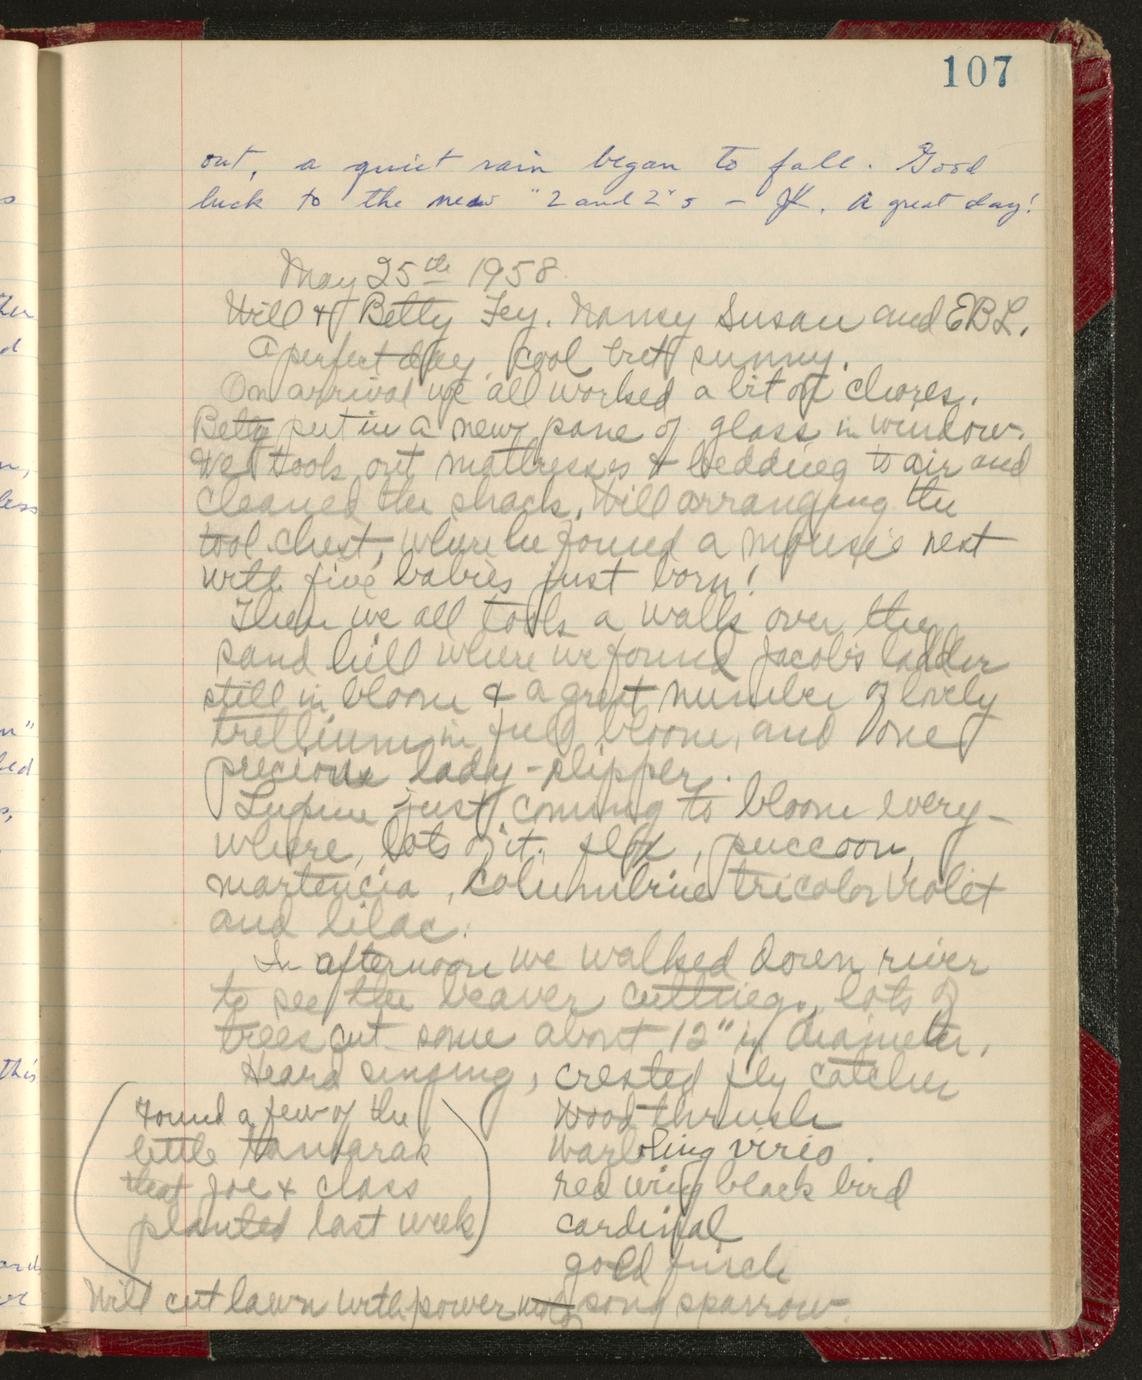 107
out, a quiet rain began to fall. Good
luck to the new "2 and 2"s – JK. A great day!
May 25th 1958.
Will & Betty Fey. Nancy Susan and EBL.
A perfect day, cool but sunny.
On arrival we all worked a bit at chores.
Betty put in a new pane of glass in window.
We took out mattresses & bedding to air and
cleaned the shack, Will arranging the
tool chest, where he found a mouse's nest
with five babies just born!
Then we all took a walk over the
sand hill where we found Jacob's ladder
still in bloom & a great number of lovely
trellium in full bloom, and one
precious lady-slipper.
Lupine just coming to bloom every-
where, lots of it. , puccoon,
martencia, Columbine tricolor violet
and lilac.
In afternoon we walked down river
to see the beaver cuttings, lots of
trees cut some about 12" in diameter.
Heard singing, crested fly catcher
Wood thrush
Warbling virio.
red wing black bird
cardinal
gold finch
song sparrow.
(Found a few of the
little tamarak
that Joe & class
planted last week)
Will cut lawn with power